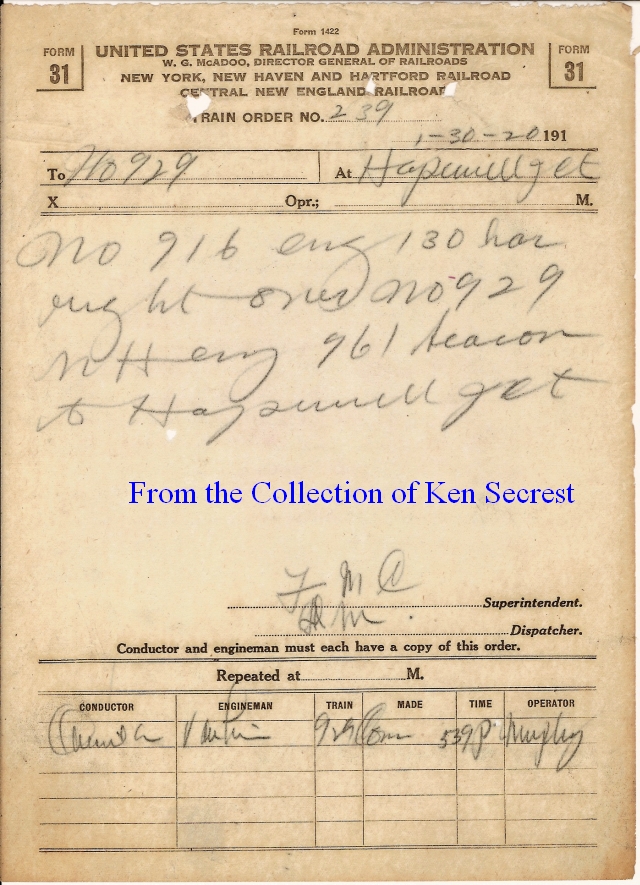 Form 1422
FORM 31
UNITED STATES RAILROAD ADMINISTRATION
FORM 31
W. G. McADOO, DIRECTOR GENERAL OF RAILROADS
NEW YORK, NEW HAVEN AND HARTFORD RAILROAD
CENTRAL NEW ENGLAND RAILROAD
TRAIN ORDER NO. 239
1-30-20 191
To No 929 At Hopewell Jct
X Opr.; M.
No 916 eng 130 has
right over No 929
N H eng 961 Beacon
to Hopewell Jct
From the Collection of Ken Secrest
F M C Superintendent.
Dispatcher.
Conductor and engineman must each have a copy of this order.
Repeated at M.
CONDUCTOR ENGINEMAN TRAIN MADE TIME OPERATOR
929 Com 539P Murphy